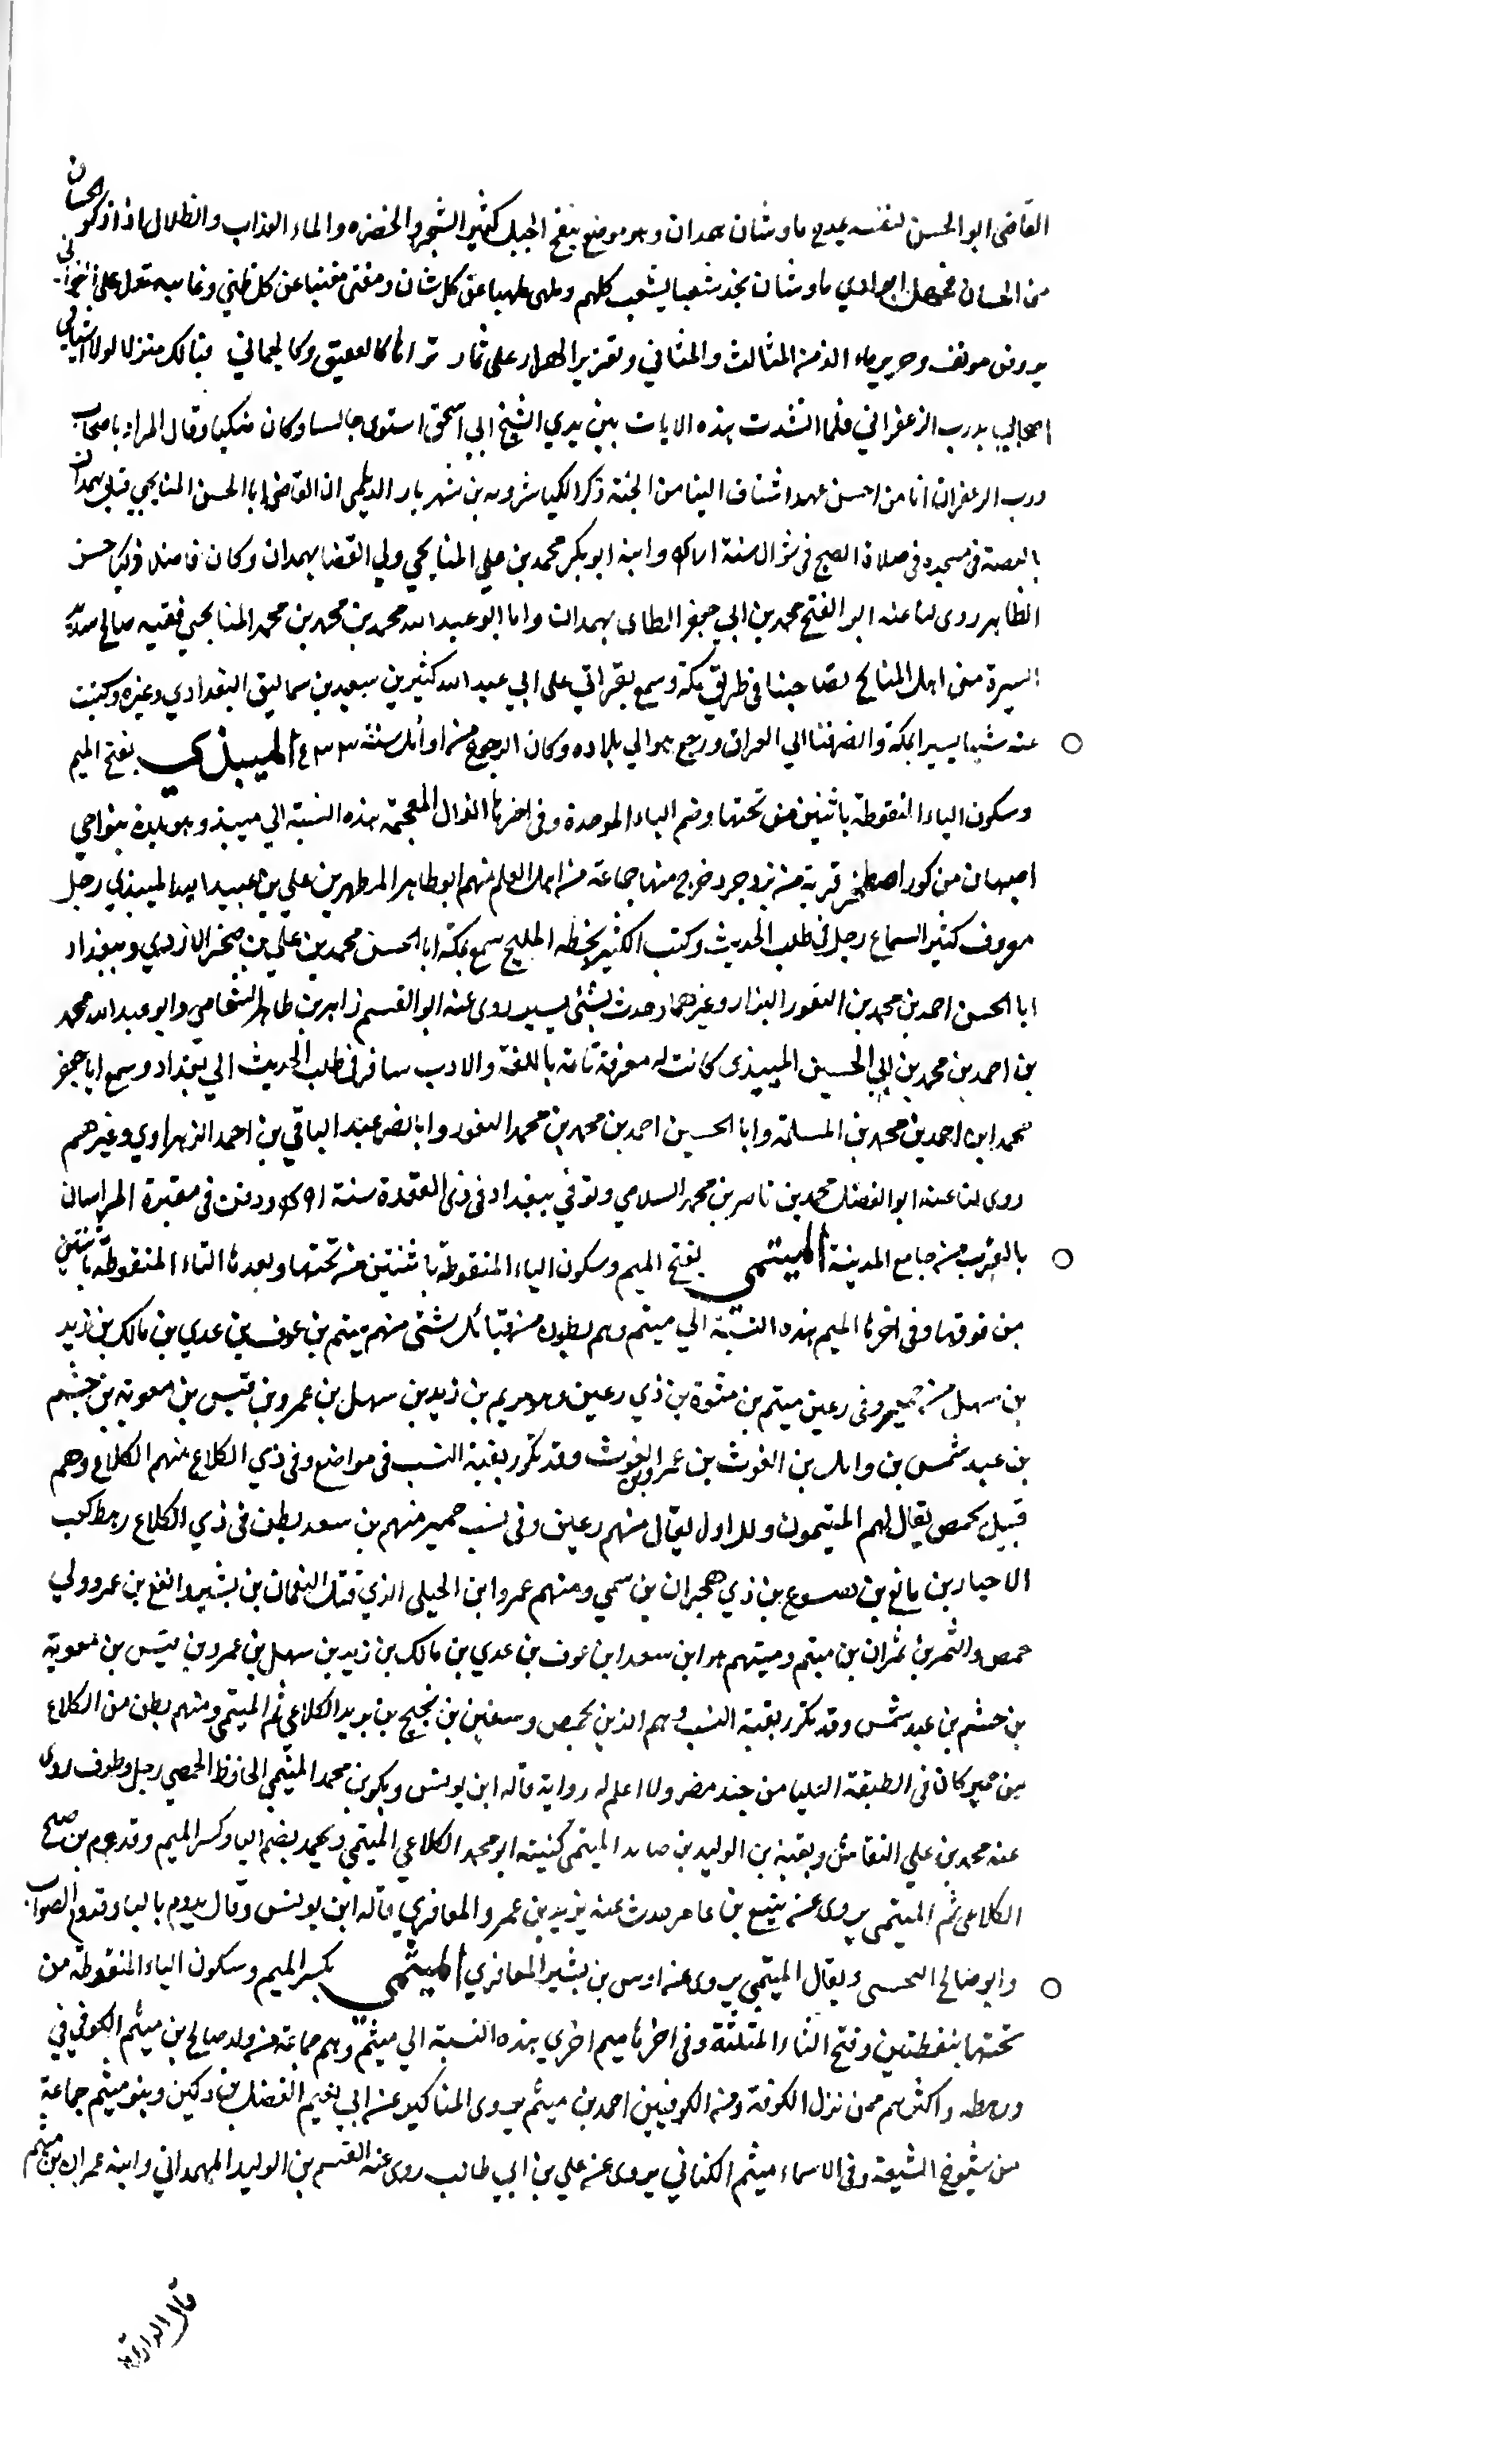 القاضي ابو الحسن لنفسه يمدح ماوشان همدان وهو موضع بنفح الجبل كثير الشجر والخضره والماء العذاب والظلال اذا ذكر الحسان
من الحسان فحيهل ابوادي ماوشان تجد شعبا يشعب كلهم وملهى ملهيا عن كل شان ومغنى مغنيا عن كل ظبي وغانيه تدل على اخواني
بروض مونق وخرير ماء الذ من المثالث والمثاني وتغريد الهزار على ثمار تراها كالعقيق وكالجماني فيالك منزلا لولا اشتياقي
اصحابي بدرب الزعفراني فلما انشدت هذه الابيات بين يدي الشيخ ابي اسحق استوى جالسا وكان متكيا وقال المراد باصحاب
درب الزعفران انا من احسن عهدا شتاف الينا من الجنة ذكر الكيا شرويه بن شهريار الديلمي ان القاضي ابا الحسن الميانجي قتل بهمدان
في مسجده في صلاة الصبح في شوال سنة وابنه ابو بكر محمد بن علي الميانجي ولي القضا بهمدان وكان فاضلا حسن
الظاهر روى لنا عنه ابو الفتح محمد بن ابي جعفر الطائي بهمدان واما ابو عبد الله محمد بن محمد بن محمد المنابجي فقيه صالح سديد
السيرة من اهل الميانج تصاحبنا في طريق مكة وسمع بقراتي على ابي عبد الله كثير بن سعيد بن سماليق البغدادي وغيره وكتبت
عنه شيا يسيرا بمكة وانصرفنا الي العراق ورجع هو الي بلاده وكان الرجوع من اوائل سنة الميبذي بفتح الميم
وسكون الياء المنقوطة باثنتين من تحتها وضم الباء الموحدة وفي اخرها الذال المعجمة هذه النسبة الي ميبذ وهو بلدة بنواحي
اصبهان من كور اصطخر قريبة من يزدجرد خرج منها جماعة من اهل العلم منهم ابو طاهر المطهر بن علي بن عبيد الله الميبذي رجل
معروف كثير السماع رحل في طلب الحديث وكتب الكثير بخطه المليح سمع بمكة ابا الحسن محمد بن علي بن صخر الازدي وببغداد
ابا الحسن احمد بن محمد بن النقور البزار وغيرهما وحدث بشئي يسير روى عنه ابو القسم زاهر بن طاهر الشحامي وابو عبد الله محمد
بن احمد بن محمد بن ابي الحسين الميبذي كانت له معرفة تامة باللغة والادب سافر في طلب الحديث الي بغداد وسمع ابا جعفر
محمد ابن احمد بن محمد بن المسلمة وابا الحسين احمد بن محمد بن محمد النقور وابا نصر عبد الباقي بن احمد الزهراوي وغيرهم
روى لنا عنه ابو الفضل محمد بن ناصر بن محمد السلامي وتوفي ببغداد في ذي القعدة سنة ودفن في مقبرة
بالقرب من جامع المدينة الميتمي بفتح الميم وسكون الياء المنقوطة باثنتين من تحتها وبعدها التاء المنقوطة باثنتين
من فوقها وفي اخرها الميم هذه النسبة الي ميتم وهم بطون من قبائل شتى منهم ميتم بن عوف بن عدي بن مالك بن زيد
بن سهل من حمير وفي رعين ميتم بن مثوة بن ذي رعين وهو يريم بن زيد بن سهل بن عمرو بن قيس بن معوية بن جشم
بن عبد شمس بن وايل بن الغوث بن عمرو بن الغوث وقد تكرر بقية النسب في مواضع وفي ذي الكلاع منهم الكلاع وهم
قبيل بحمص يقال لهم الميتميون وللاول يقال منهم رعين وفي نسب حمير منهم بن سعد بطن في ذي الكلاع رهط كعب
الاحبار بن ماتع بن هسوع بن ذي هجران بن سمي ومنهم عمرو ابن الحيلي الذي قتل النعمان بن بشير وانفع بن عمرو ولي
حمص والثمر بن نمران بن ميتم وميتهم هو ابن سعد ابن عوف بن عدي بن مالك بن زيد بن سهل بن عمرو بن قيس بن معوية
بن جشم بن عبد شمس وقد تكرر بقية النسب وهم الذين بحمص وسفين بن نجيح بن يريد الكلاعي ثم الميتمي ومنهم بطن من الكلاع
من حمير كان في الطبقة العليا من جند مضر ولا اعلم له رواية قاله ابن يونس وبكر بن محمد الميتمي الحافظ الحمصي رحل وطوف روى
عنه محمد بن علي النقاش وبقية بن الوليد بن صايد الميتمي كنيته ابو محمد الكلاعي الميتمي ويحمد بضم اليا وكسر الميم وقدوم بن صبح
الكلاعي ثم الميتمي يروي عنه تبيع بن عامر حدث عنه يزيد بن عمرو المعافري قاله ابن يونس وقال يدوم باليا وقدوم الصواب
وابو صالح ويقال الميتمي يروي عنه اوس بن بشير المعافري الميثمي بكسر الميم وسكون الياء المنقوطة من
تحتها بنقطتين وفتح الثاء المثلثة وفي اخرها ميم اخري هذه النسبة الي ميثم وهم جماعة من ولد صالح بن ميثم الكوفي
ورهطه واكثرهم ممن نزل الكوفة ومن الكوفيين احمد بن ميثم يروي المناكير عن ابي نعيم الفضل بن دكين وبنو ميثم جماعة
من شيوخ الشيعة وفي الاسماء ميثم الكناني يروي عن علي بن ابي طالب روى عنه القسم بن الوليد الهمداني وابنه عمران بن ميثم